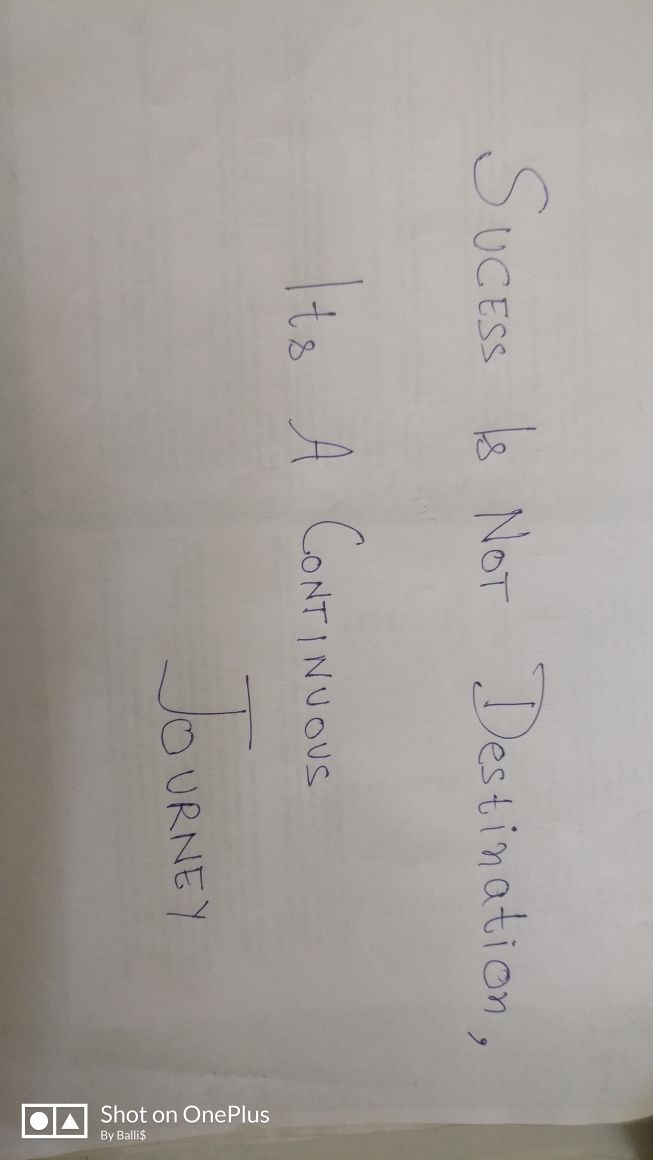 SUCESS Is NOT Destination,
Its A CONTINUOUS
JOURNEY
Shot on OnePlus
By Balli$